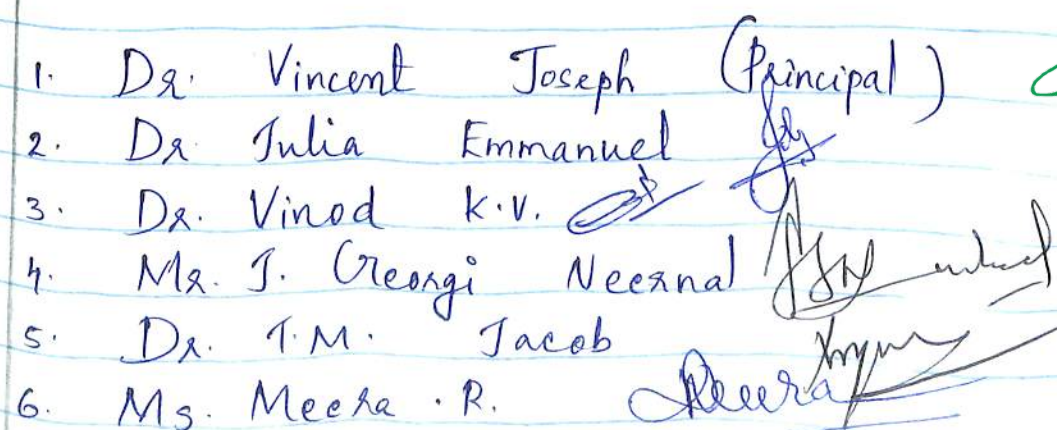 1. Dr. Vincent Joseph (Principal)
2. Dr Julia Emmanuel
3. Dr. Vinod K.V.
4. Mr. J. Georgi Neernal
5. Dr. T.M. Jacob
6. Ms. Meera . R. Meera